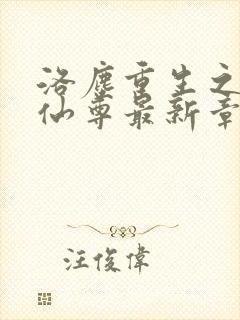 洛塵重生之
仙尊最新章
汪俊偉